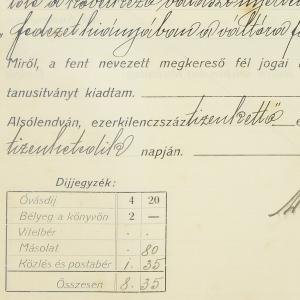 a következő választ nyerte
fedezet hiányában a váltóra
Miről, a fent nevezett megkereső fél jogai
tanusitványt kiadtam.
Alsólendván, ezerkilencszáz tizenkettő
tizenhetedik napján.
Díjjegyzék:
Óvásdíj 4 20
Bélyeg a könyvön 2 —
Vitelbér . .
Másolat . 80
Közlés és postabér 1. 35
Összesen 8. 35